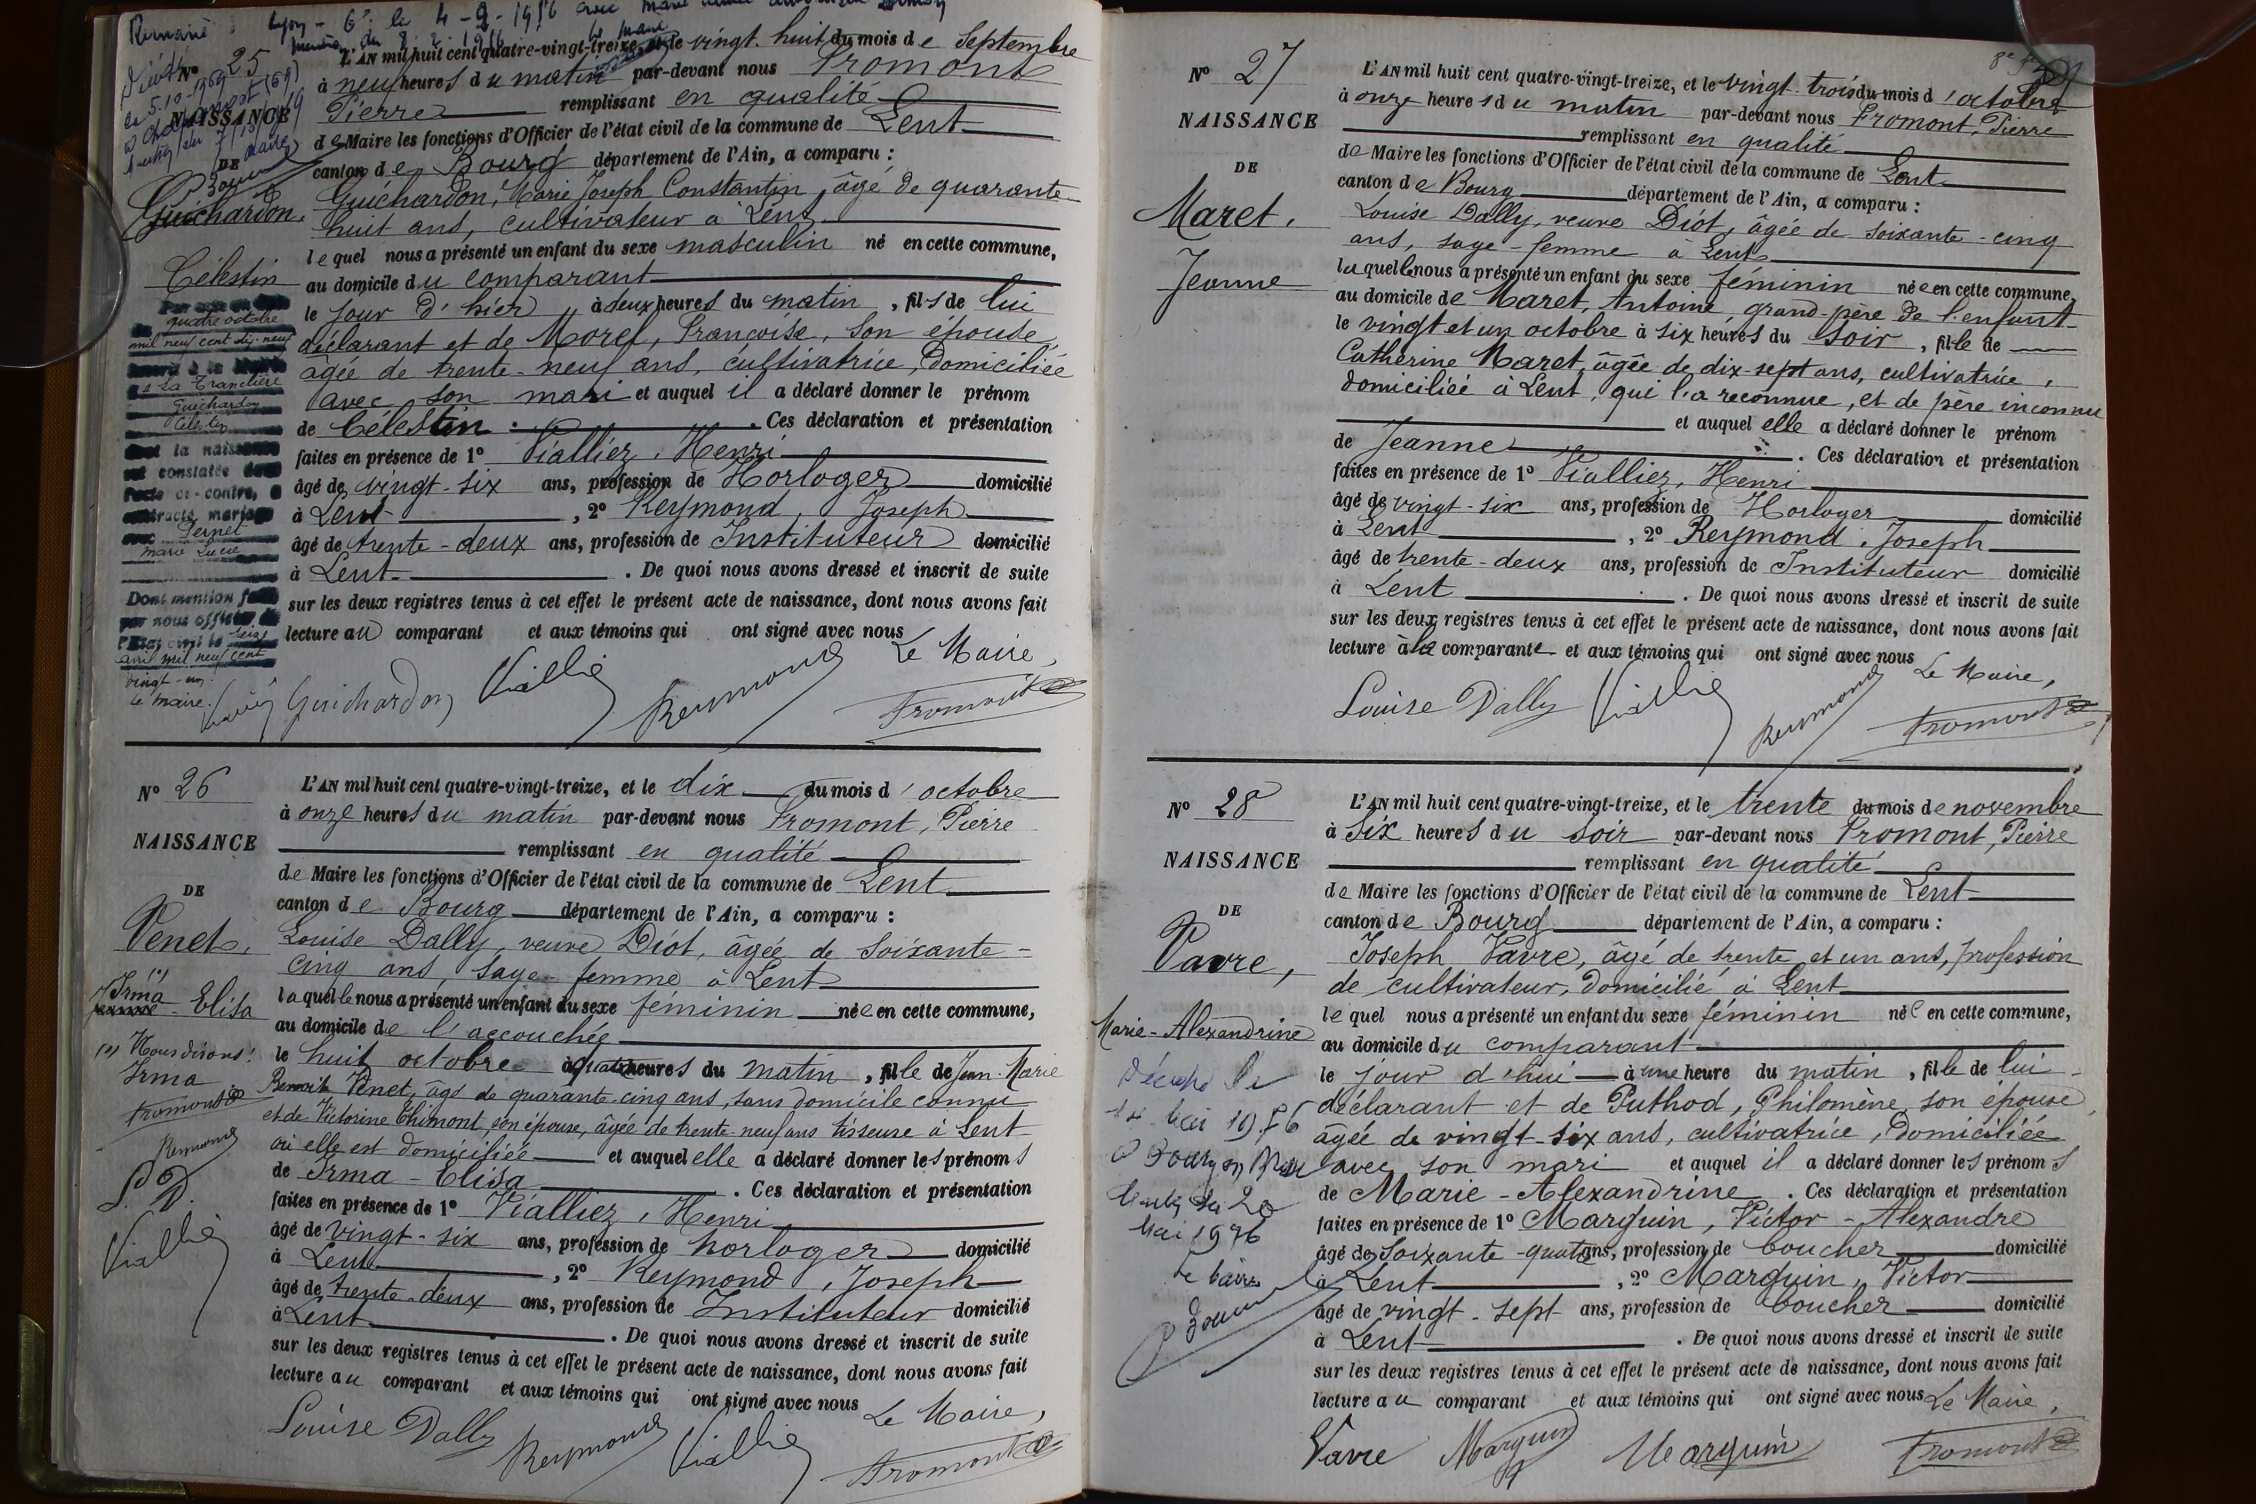 Remarié Lyon - 6e le 4-9-1956 avec Marie
Décédé
le 5.10.1969
Nº 25
NAISSANCE
DE
Guichardon,
Célestin
quatre octobre
mil neuf cent dix-neuf
à La Tranclière
Guichardon
Célestin
dont la naissance
est constatée dans
l'acte ci-contre, a
contracté mariage
avec Pernet
Marie Lucie
Dont mention faite
par nous officier de
l'État civil le seize
avril mil neuf cent
vingt-un.
Le Maire.
L'AN mil huit cent quatre-vingt-treize, et le vingt-huit du mois de Septembre
à neuf heures du matin par-devant nous Fromont
Pierre remplissant en qualité
de Maire les fonctions d'Officier de l'état civil de la commune de Lent
canton de Bourg département de l'Ain, a comparu :
Guichardon, Marie Joseph Constantin, âgé de quarante
huit ans, cultivateur à Lent
lequel nous a présenté un enfant du sexe masculin né en cette commune,
au domicile du comparant
le jour d'hier à deux heures du matin, fils de lui
déclarant et de Morel, Françoise, son épouse,
âgée de trente-neuf ans, cultivatrice, domiciliée
avec son mari et auquel il a déclaré donner le prénom
de Célestin. Ces déclaration et présentation
faites en présence de 1º Vialliez, Henri
âgé de vingt-six ans, profession de Horloger domicilié
à Lent, 2º Reymond, Joseph
âgé de trente-deux ans, profession de Instituteur domicilié
à Lent. De quoi nous avons dressé et inscrit de suite
sur les deux registres tenus à cet effet le présent acte de naissance, dont nous avons fait
lecture au comparant et aux témoins qui ont signé avec nous
Le Maire,
Guichardon Viallie Reymond Fromont
Nº 26
NAISSANCE
DE
Venet,
(1)
Irma - Elisa
(1) Nous disons :
Irma
Fromont
Reymond
L. D.
Viallie
L'AN mil huit cent quatre-vingt-treize, et le dix du mois d'octobre
à onze heures du matin par-devant nous Fromont, Pierre
remplissant en qualité
de Maire les fonctions d'Officier de l'état civil de la commune de Lent
canton de Bourg département de l'Ain, a comparu :
Louise Dally, veuve Diot, âgée de soixante-
cinq ans, sage-femme à Lent
laquelle nous a présenté un enfant du sexe féminin née en cette commune,
au domicile de l'accouchée
le huit octobre à quatre heures du matin, fille de Jean-Marie
Benoit Venet, âgé de quarante-cinq ans, sans domicile connu
et de Victorine Thimont, son épouse, âgée de trente-neuf ans tisseuse à Lent
où elle est domiciliée et auquel elle a déclaré donner les prénoms
de Irma - Elisa. Ces déclaration et présentation
faites en présence de 1º Vialliez, Henri
âgé de vingt-six ans, profession de horloger domicilié
à Lent, 2º Reymond, Joseph
âgé de trente-deux ans, profession de Instituteur domicilié
à Lent. De quoi nous avons dressé et inscrit de suite
sur les deux registres tenus à cet effet le présent acte de naissance, dont nous avons fait
lecture au comparant et aux témoins qui ont signé avec nous
Le Maire,
Louise Dally Reymond Viallie Fromont
Nº 27
NAISSANCE
DE
Maret,
Jeanne
L'AN mil huit cent quatre-vingt-treize, et le vingt-trois du mois d'octobre
à onze heures du matin par-devant nous Fromont, Pierre
remplissant en qualité
de Maire les fonctions d'Officier de l'état civil de la commune de Lent
canton de Bourg département de l'Ain, a comparu :
Louise Dally, veuve Diot, âgée de soixante-cinq
ans, sage-femme à Lent
laquelle nous a présenté un enfant du sexe féminin née en cette commune,
au domicile de Maret, Antoine, grand-père de l'enfant
le vingt et un octobre à six heures du soir, fille de
Catherine Maret, âgée de dix-sept ans, cultivatrice,
domiciliée à Lent, qui l'a reconnue, et de père inconnu
et auquel elle a déclaré donner le prénom
de Jeanne. Ces déclaration et présentation
faites en présence de 1º Vialliez, Henri
âgé de vingt-six ans, profession de Horloger domicilié
à Lent, 2º Reymond, Joseph
âgé de trente-deux ans, profession de Instituteur domicilié
à Lent. De quoi nous avons dressé et inscrit de suite
sur les deux registres tenus à cet effet le présent acte de naissance, dont nous avons fait
lecture à la comparante et aux témoins qui ont signé avec nous
Le Maire,
Louise Dally Viallie Reymond Fromont
Nº 28
NAISSANCE
DE
Vavre,
Marie-Alexandrine
Décédée le
14 Mai 1976
à Bourg en Bresse
20
Mai 1976
Le Maire
L'AN mil huit cent quatre-vingt-treize, et le trente du mois de novembre
à six heures du soir par-devant nous Fromont, Pierre
remplissant en qualité
de Maire les fonctions d'Officier de l'état civil de la commune de Lent
canton de Bourg département de l'Ain, a comparu :
Joseph Vavre, âgé de trente et un ans, profession
de cultivateur, domicilié à Lent
lequel nous a présenté un enfant du sexe féminin née en cette commune,
au domicile du comparant
le jour d'hui à une heure du matin, fille de lui
déclarant et de Puthod, Philomène son épouse,
âgée de vingt-six ans, cultivatrice, domiciliée
avec son mari et auquel il a déclaré donner les prénoms
de Marie-Alexandrine. Ces déclaration et présentation
faites en présence de 1º Marguin, Victor-Alexandre
âgé de soixante-quatre ans, profession de boucher domicilié
à Lent, 2º Marguin, Victor
âgé de vingt-sept ans, profession de boucher domicilié
à Lent. De quoi nous avons dressé et inscrit de suite
sur les deux registres tenus à cet effet le présent acte de naissance, dont nous avons fait
lecture au comparant et aux témoins qui ont signé avec nous
Le Maire,
Vavre Marguin Marguin Fromont